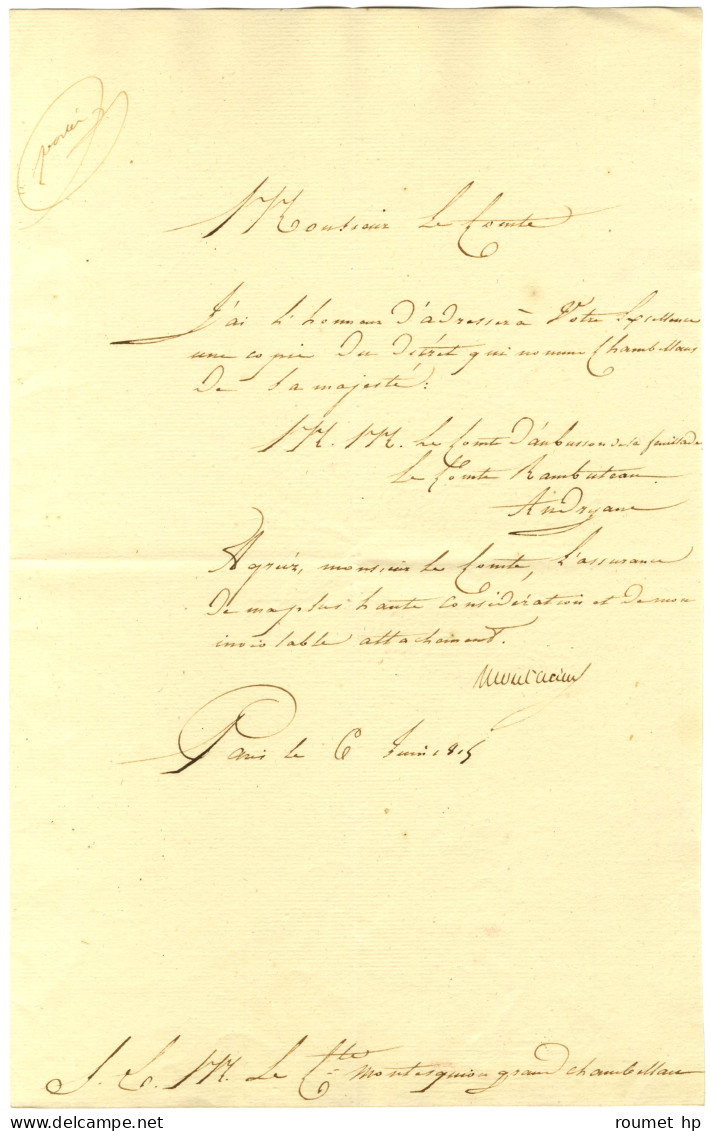 porter
Monsieur Le Comte
J'ai l'honneur d'adresser à Votre Excellence
une copie du décret qui nomme Chambellans
de Sa majesté :
M. M. Le Comte d'aubusson de la feuillade
le Comte Rambuteau
Andryane
Agréez, monsieur le Comte, l'assurance
de ma plus haute considération et de mon
inviolable attachement.
Paris le 6 Juin 1815
S. E. M. Le Cte montesquiou grand chambellan
roumet hp